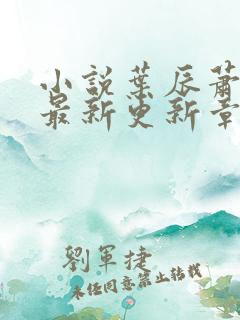 小説葉辰蕭
最新更新章
劉軍捷
未经同意禁止转载